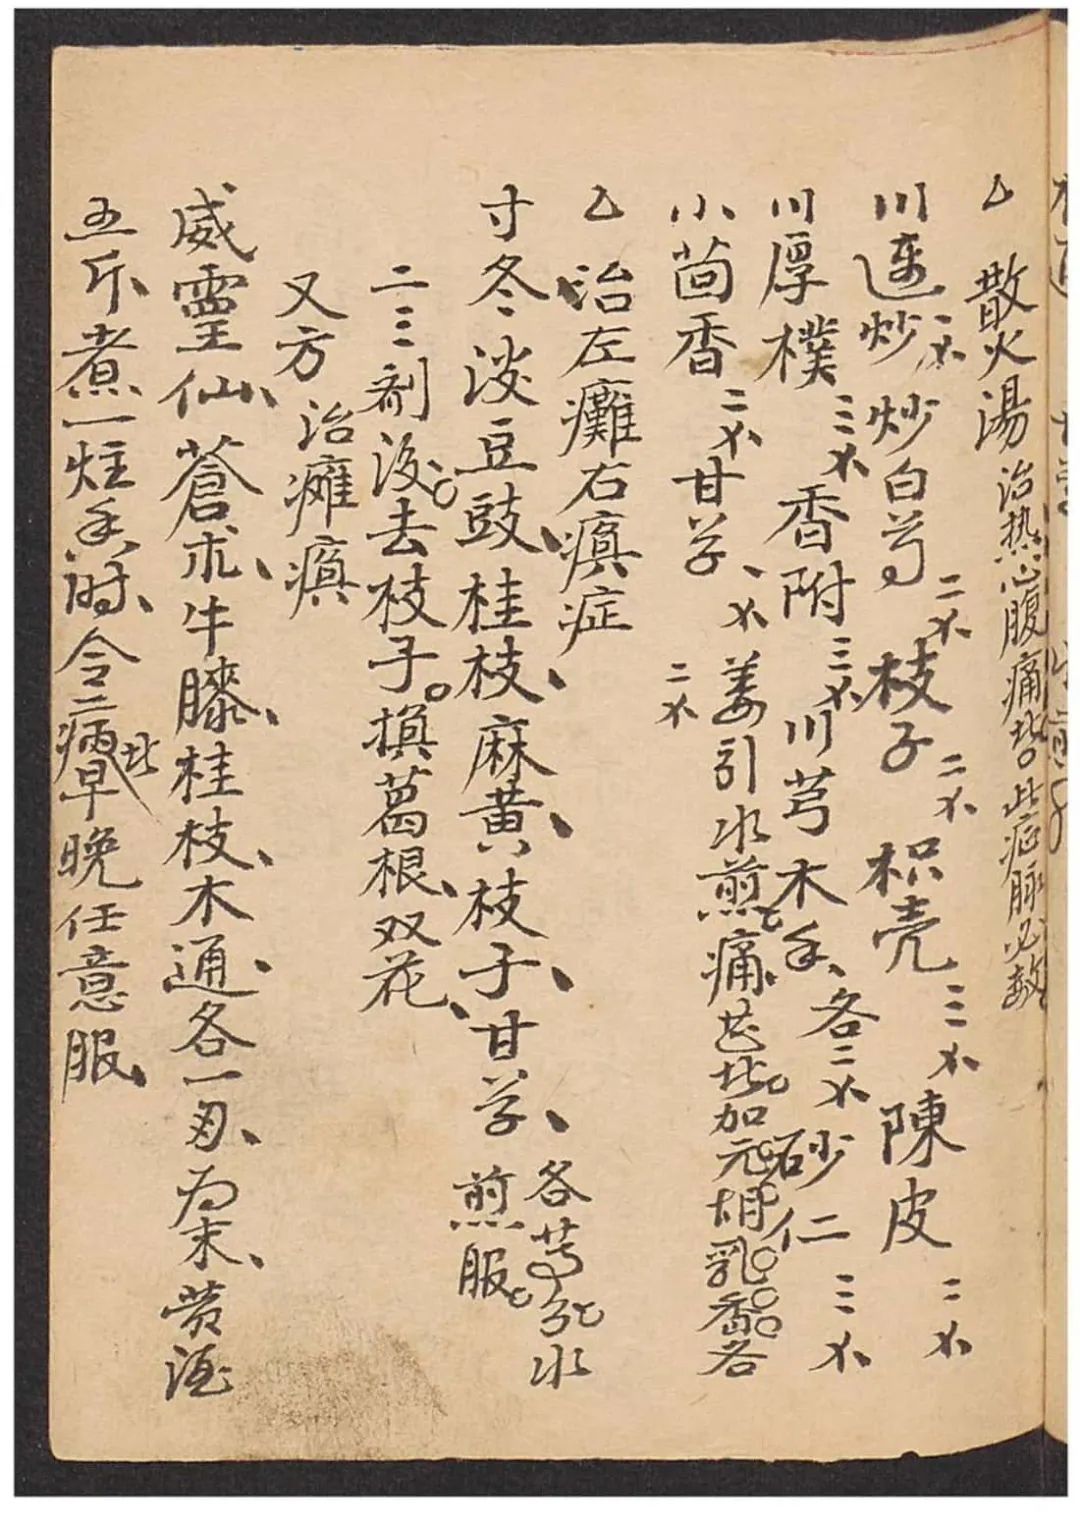 乙 散火湯 治热心腹痛者 此症脉必数
川連炒 二不 炒白芍 二不 枝子 二不 枳壳 三不 陳皮 二不
川厚樸 三不 香附 三不 川芎 木香、各二不 砂仁 三不
小茴香 二不 甘草、不 姜引 水煎 痛甚者加元胡乳香各二不
乙 治左癱右瘓症
寸冬淡豆豉、桂枝、麻黄、枝子、甘草、各等分水煎服
二三剂後去枝子。换葛根、双花、
又方 治癱瘓
威靈仙、蒼朮、牛膝、桂枝、木通、各一刄、为末、黄酒
五斤、煮一炷香时、令病者早晚任意服、